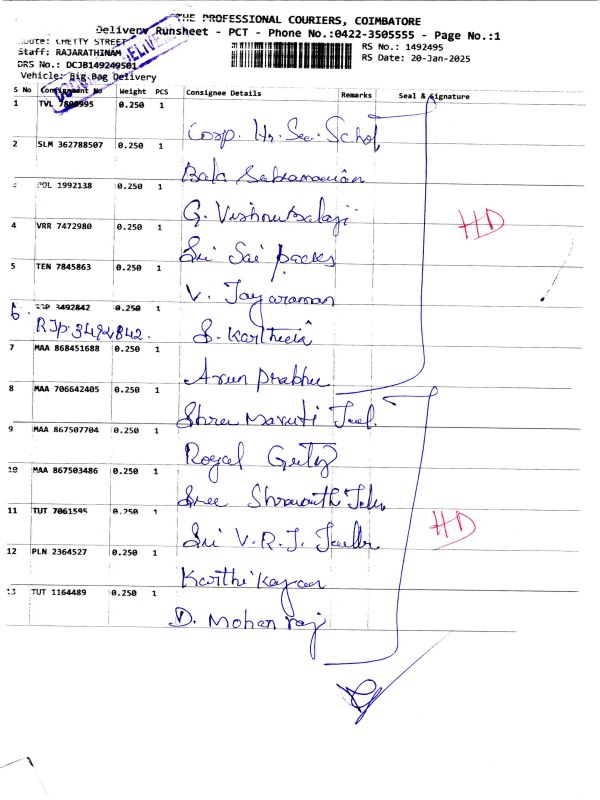 THE PROFESSIONAL COURIERS, COIMBATORE
Delivery Runsheet - PCT - Phone No.:0422-3505555 - Page No.:1
Route: CHETTY STREET
RS No.: 1492495
Staff: RAJARATHINAM
RS Date: 20-Jan-2025
DRS No.: DCJB149249501
Vehicle: Big Bag Delivery
S No Consignment No Weight PCS Consignee Details Remarks Seal & Signature
1 TVL 0.250 1
Corp. Hr. Sec. School
2 SLM 362788507 0.250 1
Bala Subramanian
POL 1992138 0.250 1
G. Vishnu Balaji
HD
4 VRR 7472980 0.250 1
Sri Sai packs
5 TEN 7845863 0.250 1
V. Jayaraman
6. 3492842 0.250 1
RJP. 3492842. S. Karthick
7 MAA 868451688 0.250 1
Arun prabhu
8 MAA 706642405 0.250 1
Shree Maruti
9 MAA 867507704 0.250 1
Royal
10 MAA 867503486 0.250 1
Sree
11 TUT 7061595 0.250 1
HD
Sri V.R.J.
12 PLN 2364527 0.250 1
Karthikayan
13 TUT 1164489 0.250 1
D. Mohan raj